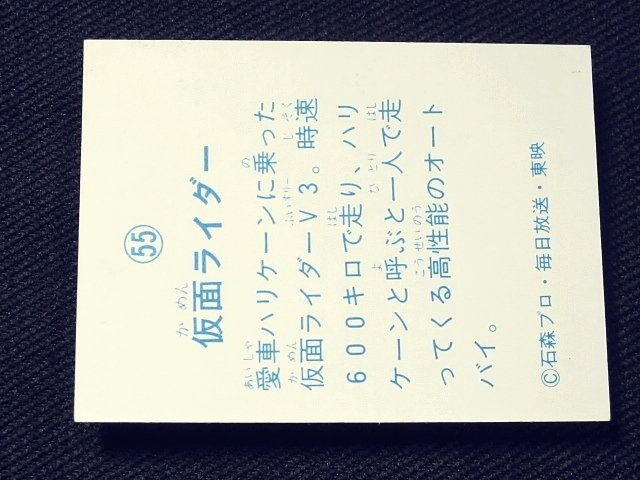 55
仮面ライダー
愛車ハリケーンに乗った
仮面ライダーV3。時速
600キロで走り、ハリ
ケーンと呼ぶと一人で走
ってくる高性能のオート
バイ。
©石森プロ・毎日放送・東映